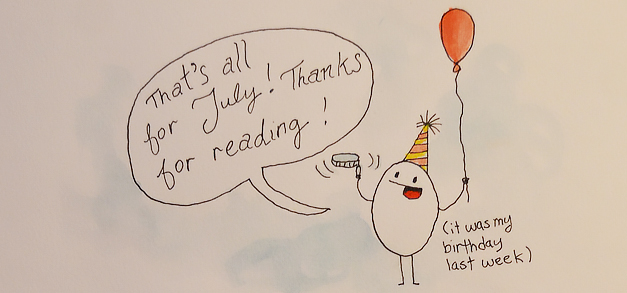 That's all
for July! Thanks
for reading!
(it was my
birthday
last week)